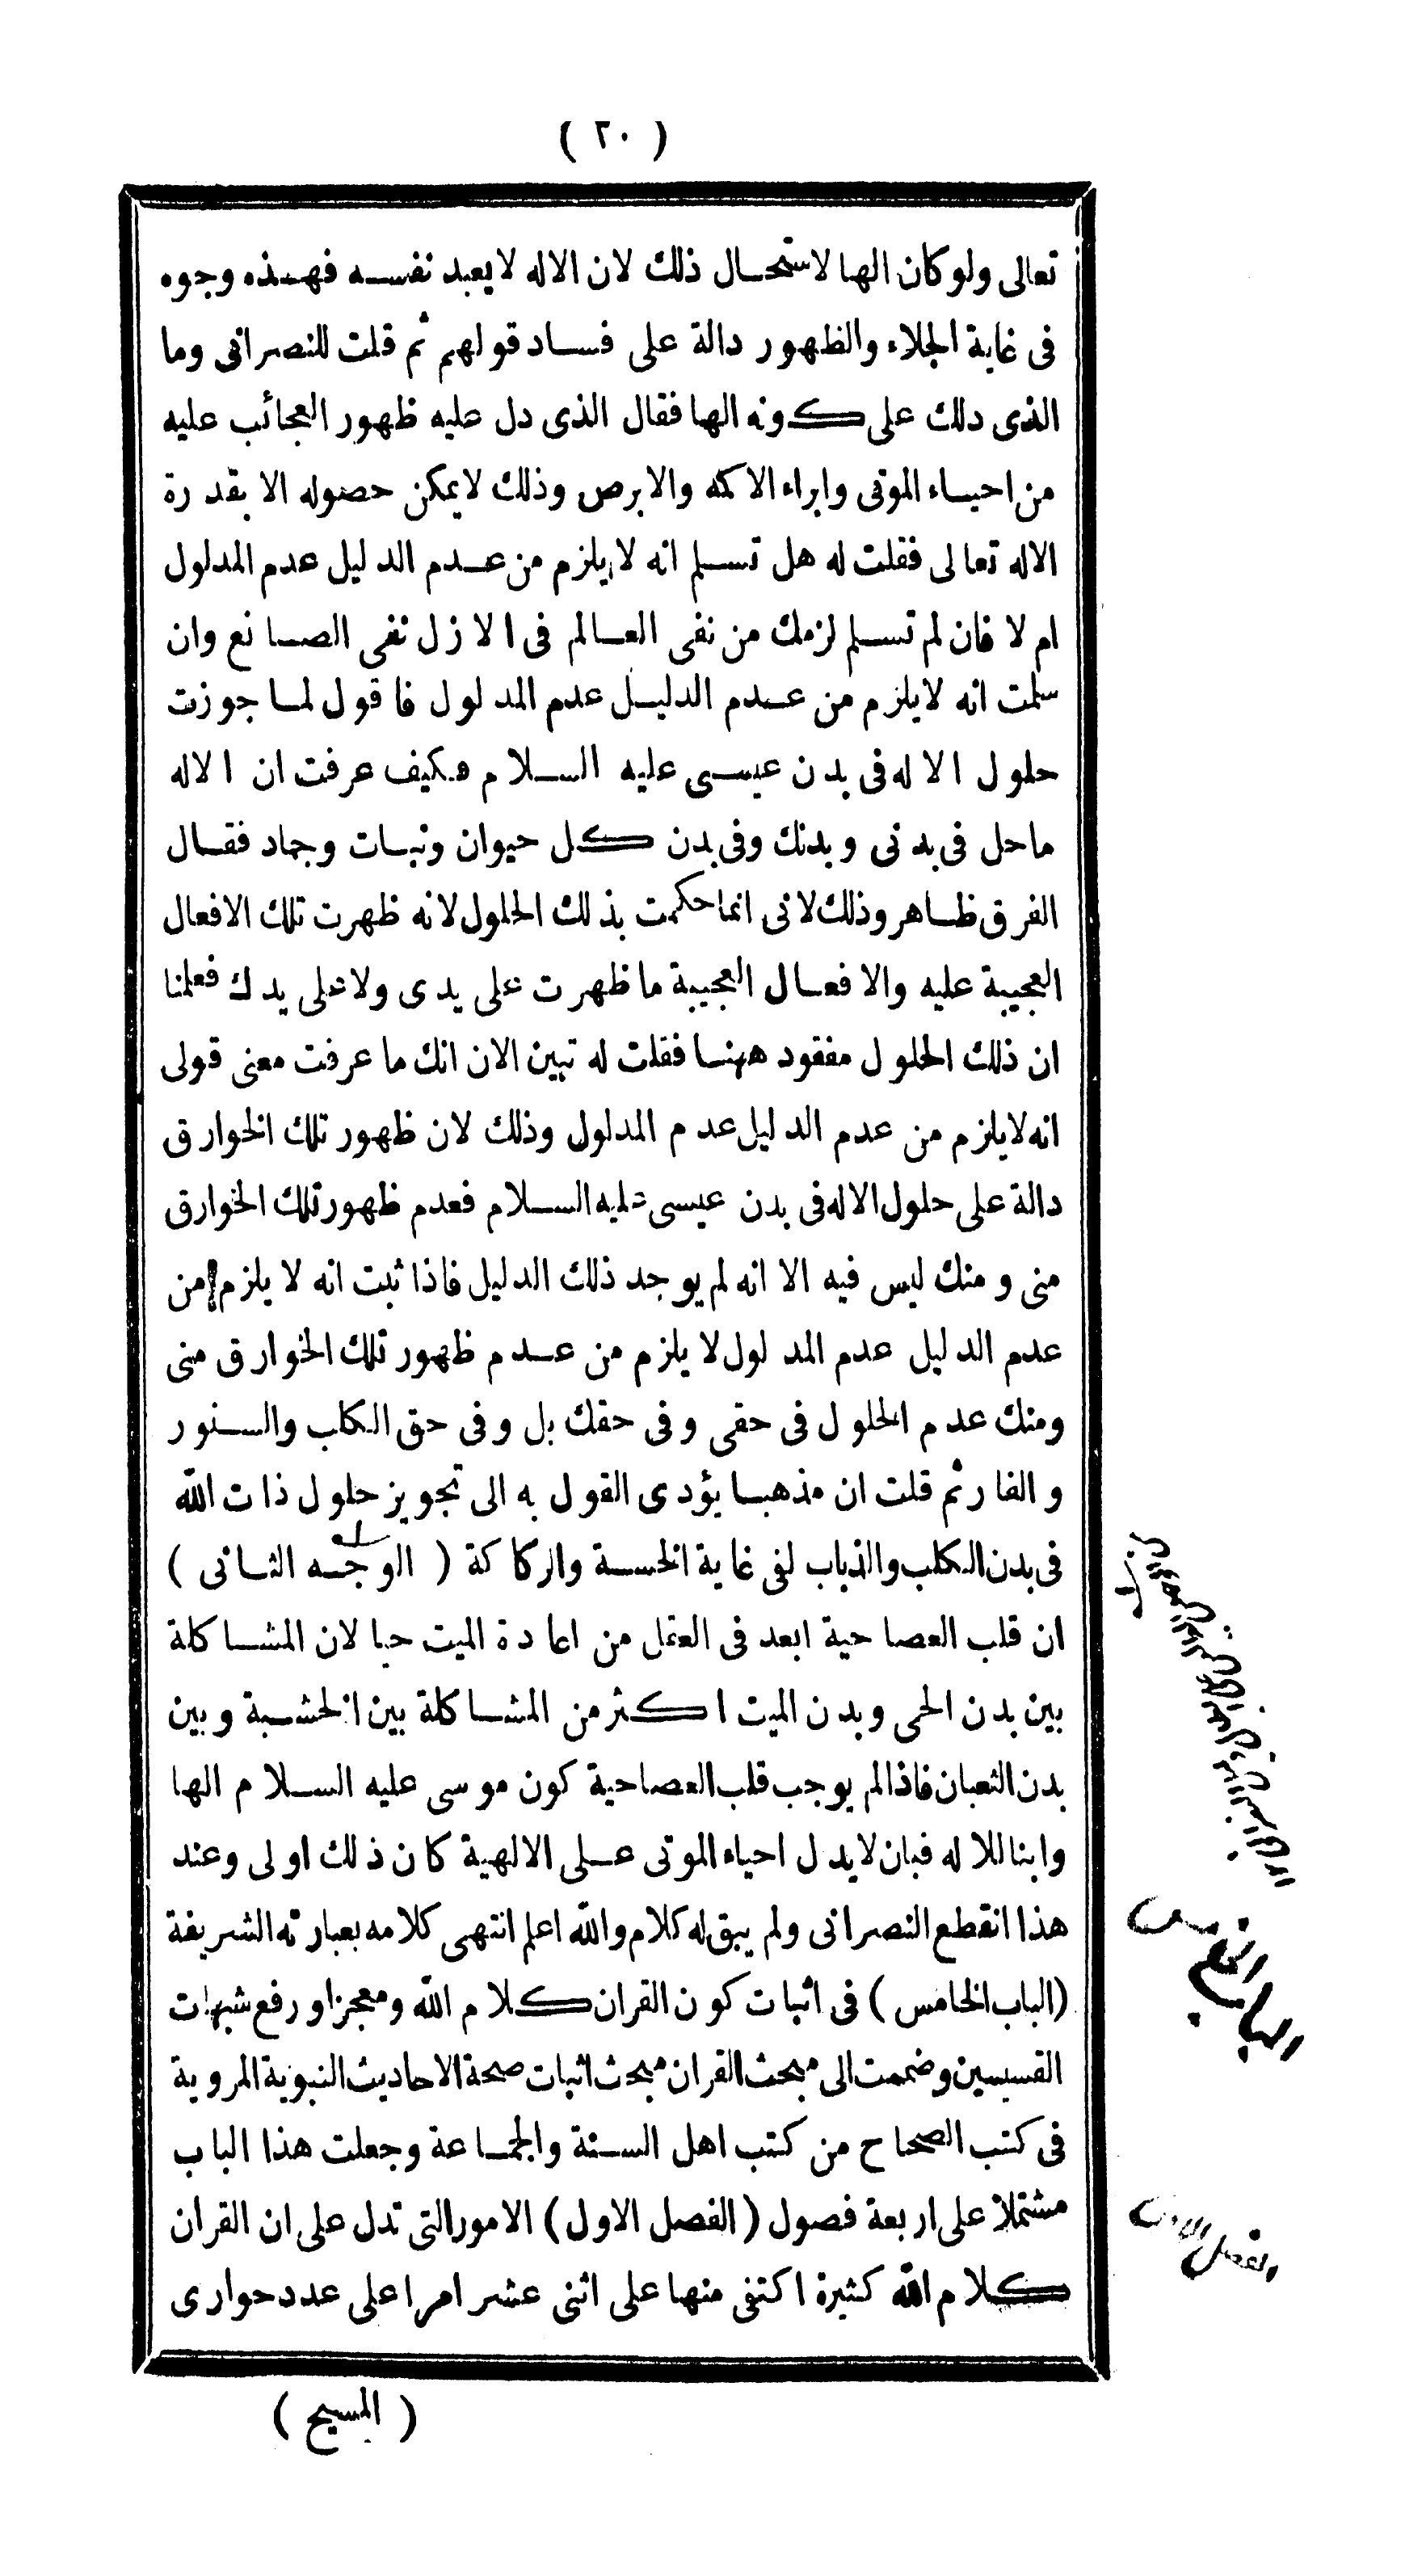 ( ٢٠ )
تعالى ولو كان الها لاستحال ذلك لان الاله لا يعبد نفسه فهذه وجوه
فى غاية الجلاء والظهور دالة على فساد قولهم ثم قلت للنصرانى وما
الذى دلك على كونه الها فقال الذى دل عليه ظهور العجائب عليه
من احياء الموتى وابراء الاكمه والابرص وذلك لا يمكن حصوله الا بقدرة
الاله تعالى فقلت له هل تسلم انه لا يلزم من عدم الدليل عدم المدلول
ام لا فان لم تسلم لزمك من نفى العالم فى الازل نفى الصانع وان
سلمت انه لا يلزم من عدم الدليل عدم المدلول فاقول لما جوزت
حلول الاله فى بدن عيسى عليه السلام فكيف عرفت ان الاله
ما حل فى بدنى وبدنك وفى بدن كل حيوان ونبات وجماد فقال
الفرق ظاهر وذلك لانى انما حكمت بذلك الحلول لانه ظهرت تلك الافعال
العجيبة عليه والافعال العجيبة ما ظهرت على يدى ولا على يدك فعلمنا
ان ذلك الحلول مفقود ههنا فقلت له تبين الان انك ما عرفت معنى قولى
انه لا يلزم من عدم الدليل عدم المدلول وذلك لان ظهور تلك الخوارق
دالة على حلول الاله فى بدن عيسى عليه السلام فعدم ظهور تلك الخوارق
منى ومنك ليس فيه الا انه لم يوجد ذلك الدليل فاذا ثبت انه لا يلزم من
عدم الدليل عدم المدلول لا يلزم من عدم ظهور تلك الخوارق منى
ومنك عدم الحلول فى حقى وفى حقك بل وفى حق الكلب والسنور
والفار ثم قلت ان مذهبا يؤدى القول به الى تجويز حلول ذات الله
فى بدن الكلب والذباب لفى غاية الخسة والركاكة ( الوجه الثانى )
ان قلب العصا حية ابعد فى العقل من اعادة الميت حيا لان المشاكلة
بين بدن الحى وبدن الميت اكثر من المشاكلة بين الخشبة وبين
بدن الثعبان فاذا لم يوجب قلب العصا حية كون موسى عليه السلام الها
وابنا للاله فبان لا يدل احياء الموتى على الالهية كان ذلك اولى وعند
هذا انقطع النصرانى ولم يبق له كلام والله اعلم انتهى كلامه بعبارته الشريفة
(الباب الخامس ) فى اثبات كون القران كلام الله ومعجزا ورفع شبهات
القسيسين وضممت الى مبحث القران مبحث اثبات صحة الاحاديث النبوية المروية
فى كتب الصحاح من كتب اهل السنة والجماعة وجعلت هذا الباب
مشتملا على اربعة فصول ( الفصل الاول ) الامور التى تدل على ان القران
كلام الله كثيرة اكتفى منها على اثنى عشر امرا على عدد حوارى
( المسيح )
الباب الخامس
الفصل الاول